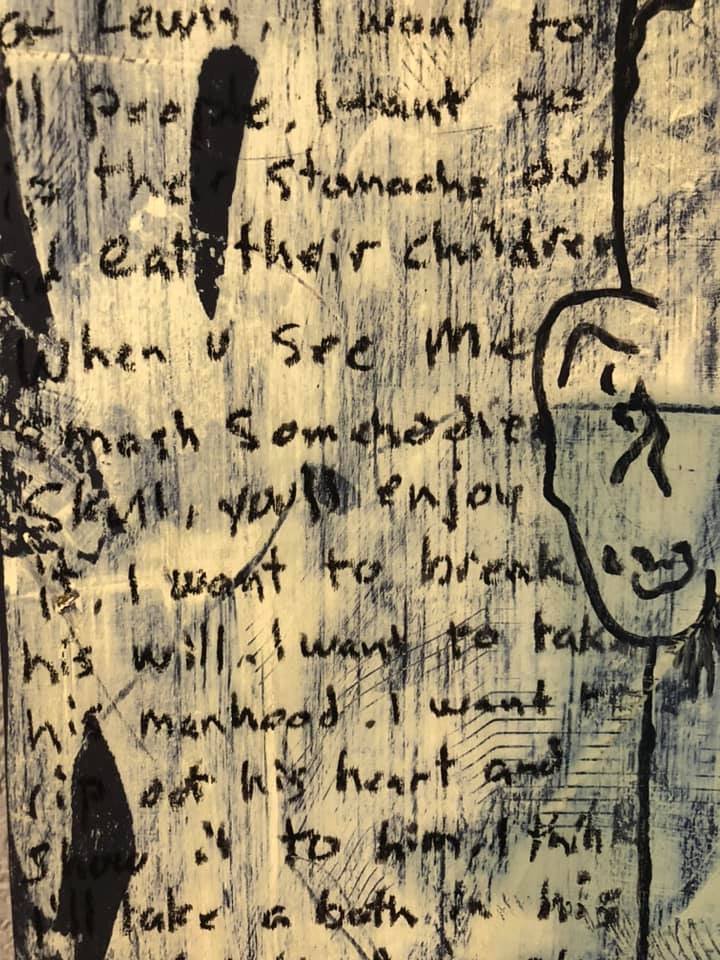 at Lewis, I want to
ll people, I want to
ip their stomachs out
nd eat their children
When u see me
smash somebodies
Skull, you'll enjoy
it, I want to break
his will. I want to take
his manhood. I want to
rip out his heart and
show it to him, I thin
I'll take a bath in his